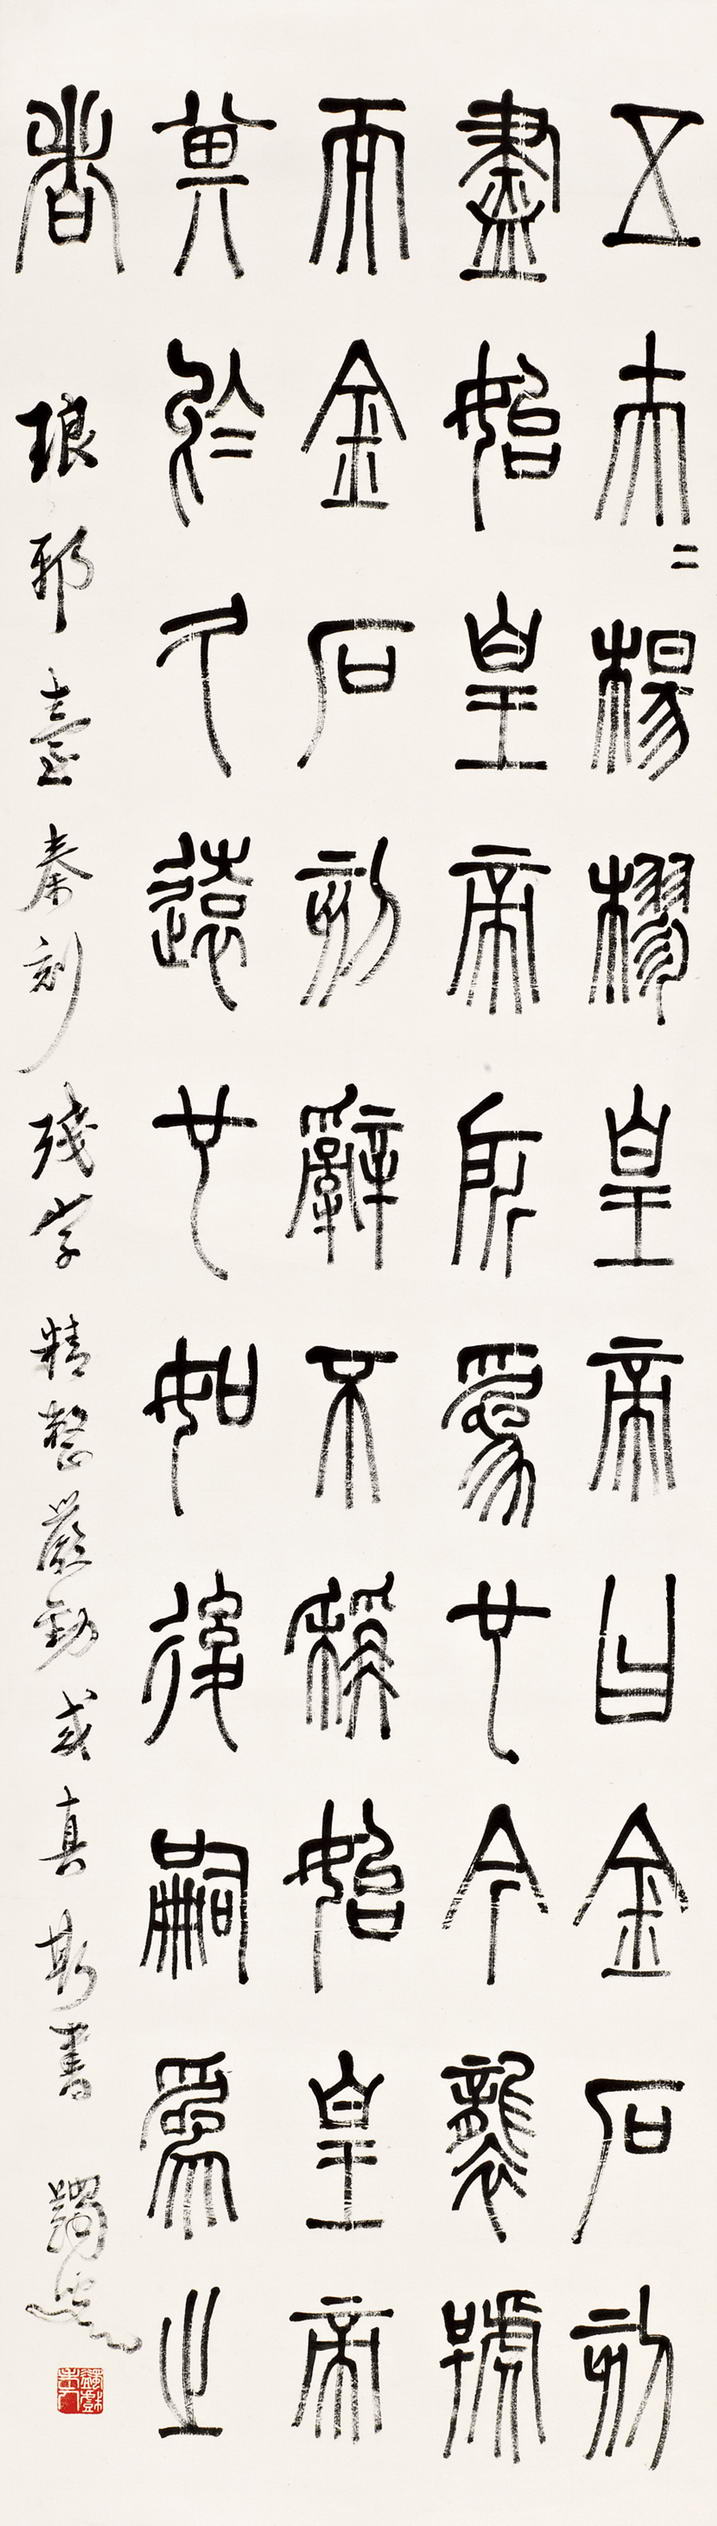 五夫=楊樛皇帝曰金石刻
盡始皇帝所爲也今襲號
而金石刻辭不稱始皇帝
其於久遠也如後嗣爲之
者 琅邪臺秦刻殘字精整嚴勁或真斯書 蠲叟
蠲戲老人